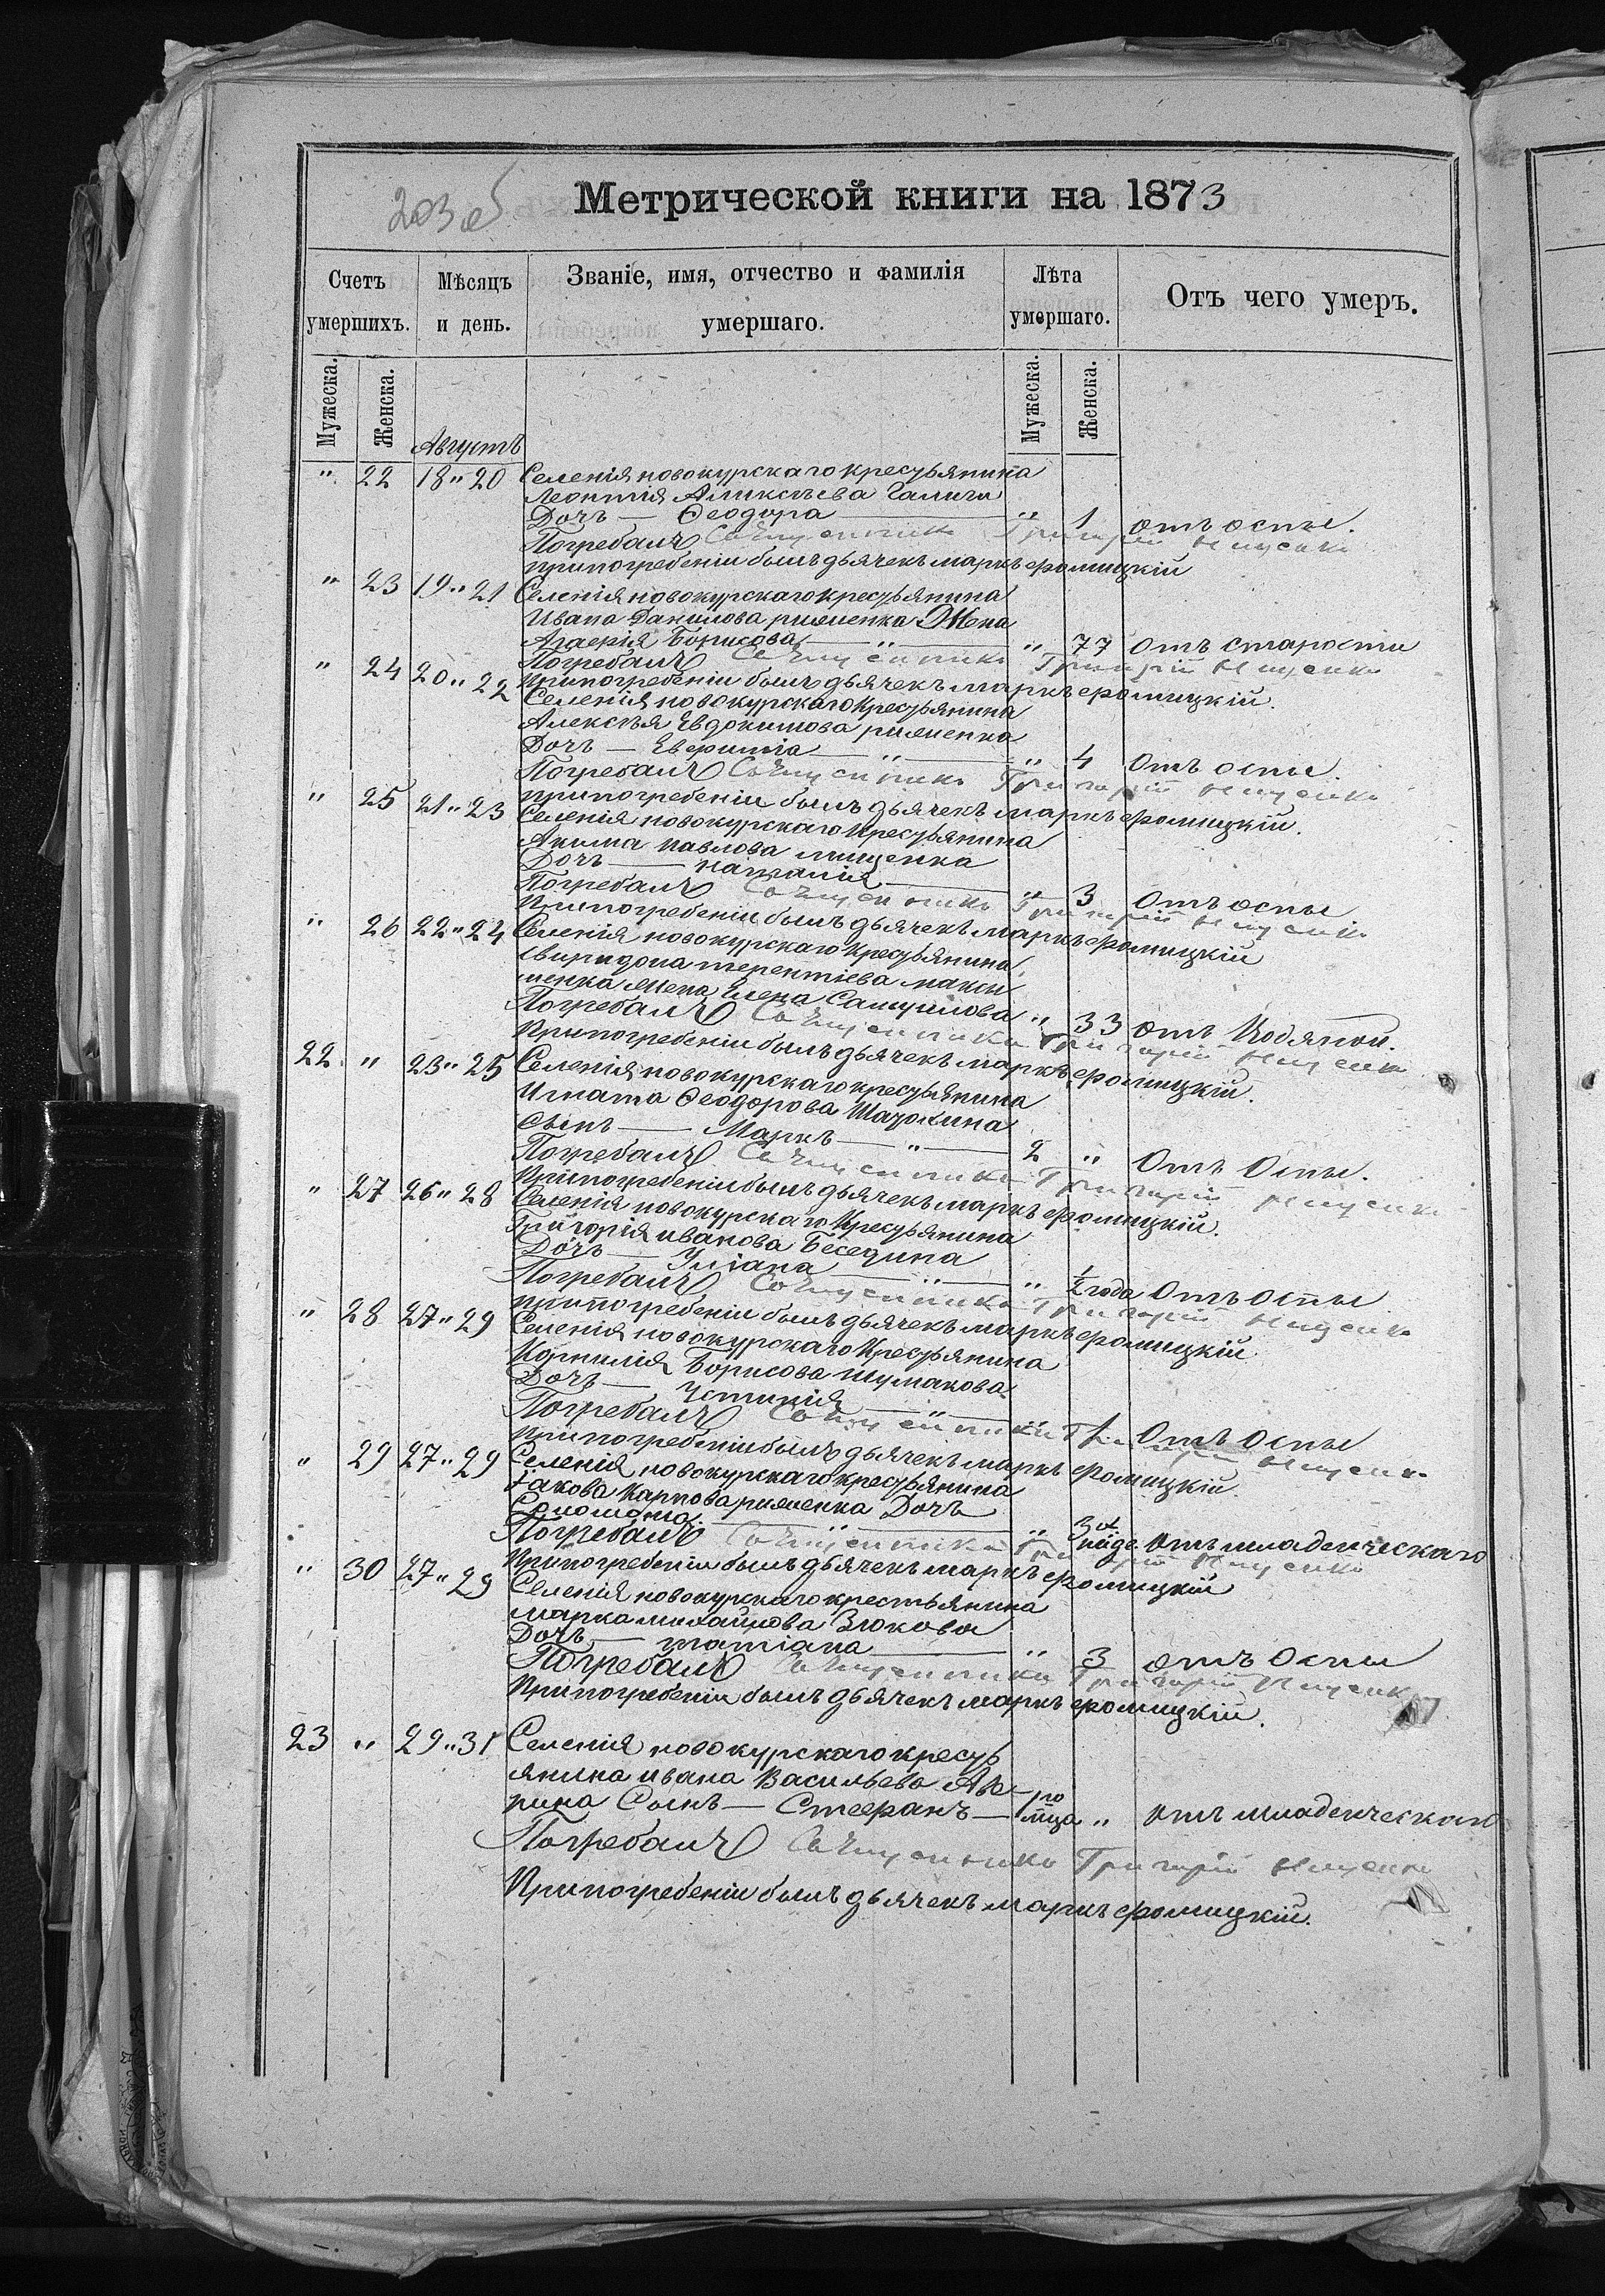 203 об
Метрической книги на 1873
Счетъ умершихъ.
Мѣсяцъ и день.
Званіе, имя, отчество и фамилія умершаго.
Лѣта умершаго.
Отъ чего умеръ.
Мужеска. Женска. Августъ Мужеска. Женска.
" 22 18 " 20 Селенія новокурскаго кресуьянина
Леонтія Аликсѣева Галича
Дочь — Ѳеодора — " 1 отъ оспы.
Погребалъ Священникъ Григорій
при погребеніи былъ дьячекъ маркъ фомицкій
" 23 19 " 21 Селенія новокурскаго кресуьянина
Ивана Данилова рименка Жена
Агафія Борисова — " — " 77 Отъ старости
Погребалъ Священникъ Григорій
При погребеніи былъ дьячекъ маркъ фомицкій.
" 24 20 " 22 Селенія новокурскаго Кресуьянина
Алексѣя Евдокимова рименка
Дочь — Евфимія — " — " 4 Отъ оспы.
Погребалъ Священникъ Григорій
при погребеніи былъ дьячекъ маркъ фомицкій.
" 25 21 " 23 Селенія новокурскаго Кресуьянина
Акима павлова мищенка
Дочь — наталія — " 3 Отъ оспы
Погребалъ Священникъ Григорій
При погребеніи былъ дьячекъ маркъ фомицкій
" 26 22 " 24 Селенія новокурскаго Кресуьянина
Свиридона терентіева макси
менка жена Елена Самуилова " 33 отъ Водяной.
Погребалъ Священникъ Григорій
При погребеніи былъ дьячекъ маркъ фомицкій.
22 " 23 " 25 Селенія новокурскаго кресуьянина
Игната Ѳеодорова Шатохина
Сынъ — Маркъ — " — 2 " Отъ Оспы.
Погребалъ Священникъ Григорій
При погребеніи былъ дьячекъ маркъ фомицкій.
" 27 26 " 28 Селенія новокурскаго Кресуьянина
Григорія иванова Беседина
Дочь — Уліана — " — " 1/2 года Отъ оспы
Погребалъ Священникъ Григорій
при погребеніи былъ дьячекъ маркъ фомицкій.
" 28 27 " 29 Селенія новокурскаго Кресуьянина
Корнилія Борисова шумакова
Дочь — Устинія — " — " 1 Отъ Оспы
Погребалъ Священникъ Григорій
При погребеніи былъ дьячекъ маркъ фомицкій.
" 29 27 " 29 Селенія новокурскаго кресуьянина
Іакова Карпова рименка Дочь
Соломонія. — " — " 3х неде. отъ младенческаго
Погребалъ Священникъ Григорій
При погребеніи былъ дьячекъ маркъ фомицкій
" 30 27 " 29 Селенія новокурскаго крестьянина
марка михайлова Зюкова
Дочь — татіана — " 3 отъ Оспы
Погребалъ Священникъ Григорій
При погребеніи былъ дьячекъ маркъ фомицкій.
23 " 29 " 31 Селенія новокурскаго кресуь
янина ивана Васильева
Сынъ — Стефанъ — мца " отъ младенческаго
Погребалъ Священникъ Григорій
При погребеніи былъ дьячекъ маркъ фомицкій.